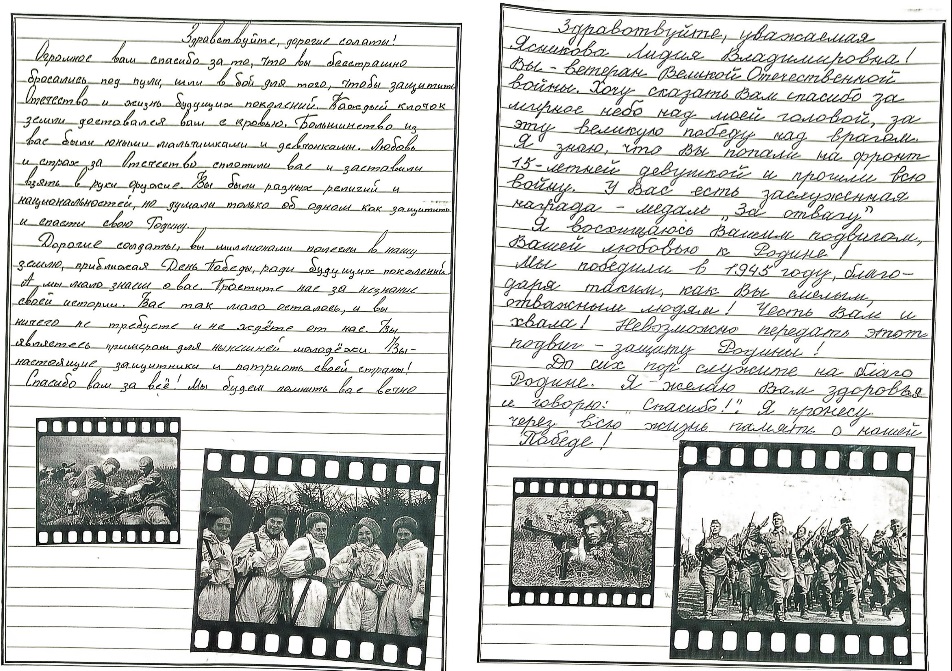 Здравствуйте, дорогие солаты!
Огромное вам спасибо за то, что вы бесстрашно
бросались под пули, шли в бой для того, чтобы защитить
Отечество и жизнь будущих поколений. Каждый клочок
земли доставался вам с кровью. Большинство из
вас были юными мальчишками и девчонками. Любовь
и страх за Отечество сплотили вас и заставили
взять в руки оружие. Вы были разных религий и
национальностей, но думали только об одном как защитить
и спасти свою Родину.
Дорогие солдаты, вы миллионами полегли в нашу
землю, приближая День Победы, ради будущих поколений.
А мы мало знаем о вас. Простите нас за незнание
своей истории. Вас так мало осталось, и вы
ничего не требуете и не ждёте от нас. Вы
являетесь примером для нынешней молодёжи. Вы-
настоящие защитники и патриоты своей страны!
Спасибо вам за всё! Мы будем помнить вас вечно
Здравствуйте, уважаемая
Ясникова Лидия Владимировна!
Вы - ветеран Великой Отечественной
войны. Хочу сказать Вам спасибо за
мирное небо над моей головой, за
эту великую победу над врагом.
Я знаю, что Вы попали на фронт
15-летней девушкой и прошли всю
войну. У Вас есть заслуженная
награда - медаль „За отвагу"
Я восхищаюсь Вашим подвигом,
Вашей любовью к Родине!
Мы победили в 1945 году, благо-
даря таким, как Вы смелым,
отважным людям! Честь Вам и
хвала! Невозможно передать этот
подвиг - защиту Родины!
До сих пор служите на благо
Родине. Я желаю Вам здоровья
и говорю: „Спасибо!". Я пронесу
через всю жизнь память о нашей
Победе!